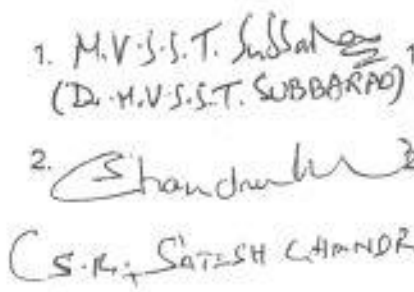 1. M.V.S.S.T. SubbaRao
(D. M.V.S.S.T. SUBBARAO)
2.
(S.R. SATISH CHANDR